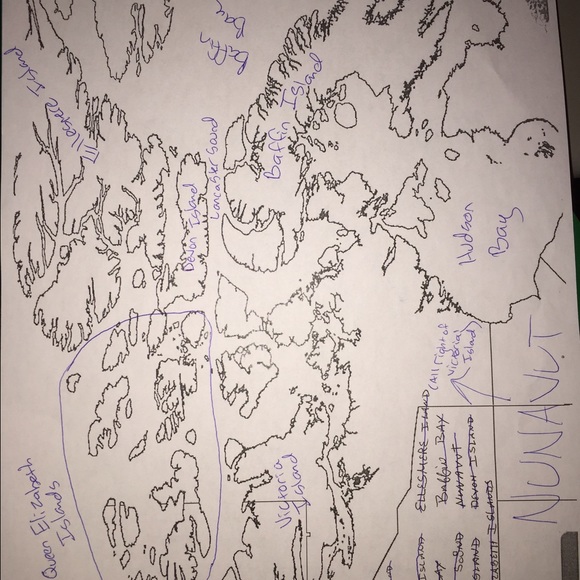 Ellesmere Island
Baffin
Bay
Baffin Island
Lancaster Sound
Devon Island
Hudson
Bay
Queen Elizabeth
Islands
Victoria
Island
(All right of
Victoria
Island)
NUNAVUT
ISLAND ELLESMERE ISLAND
BAFFIN BAY
SOUND NUNAVUT
ISLAND DEVON ISLAND
ISLANDS